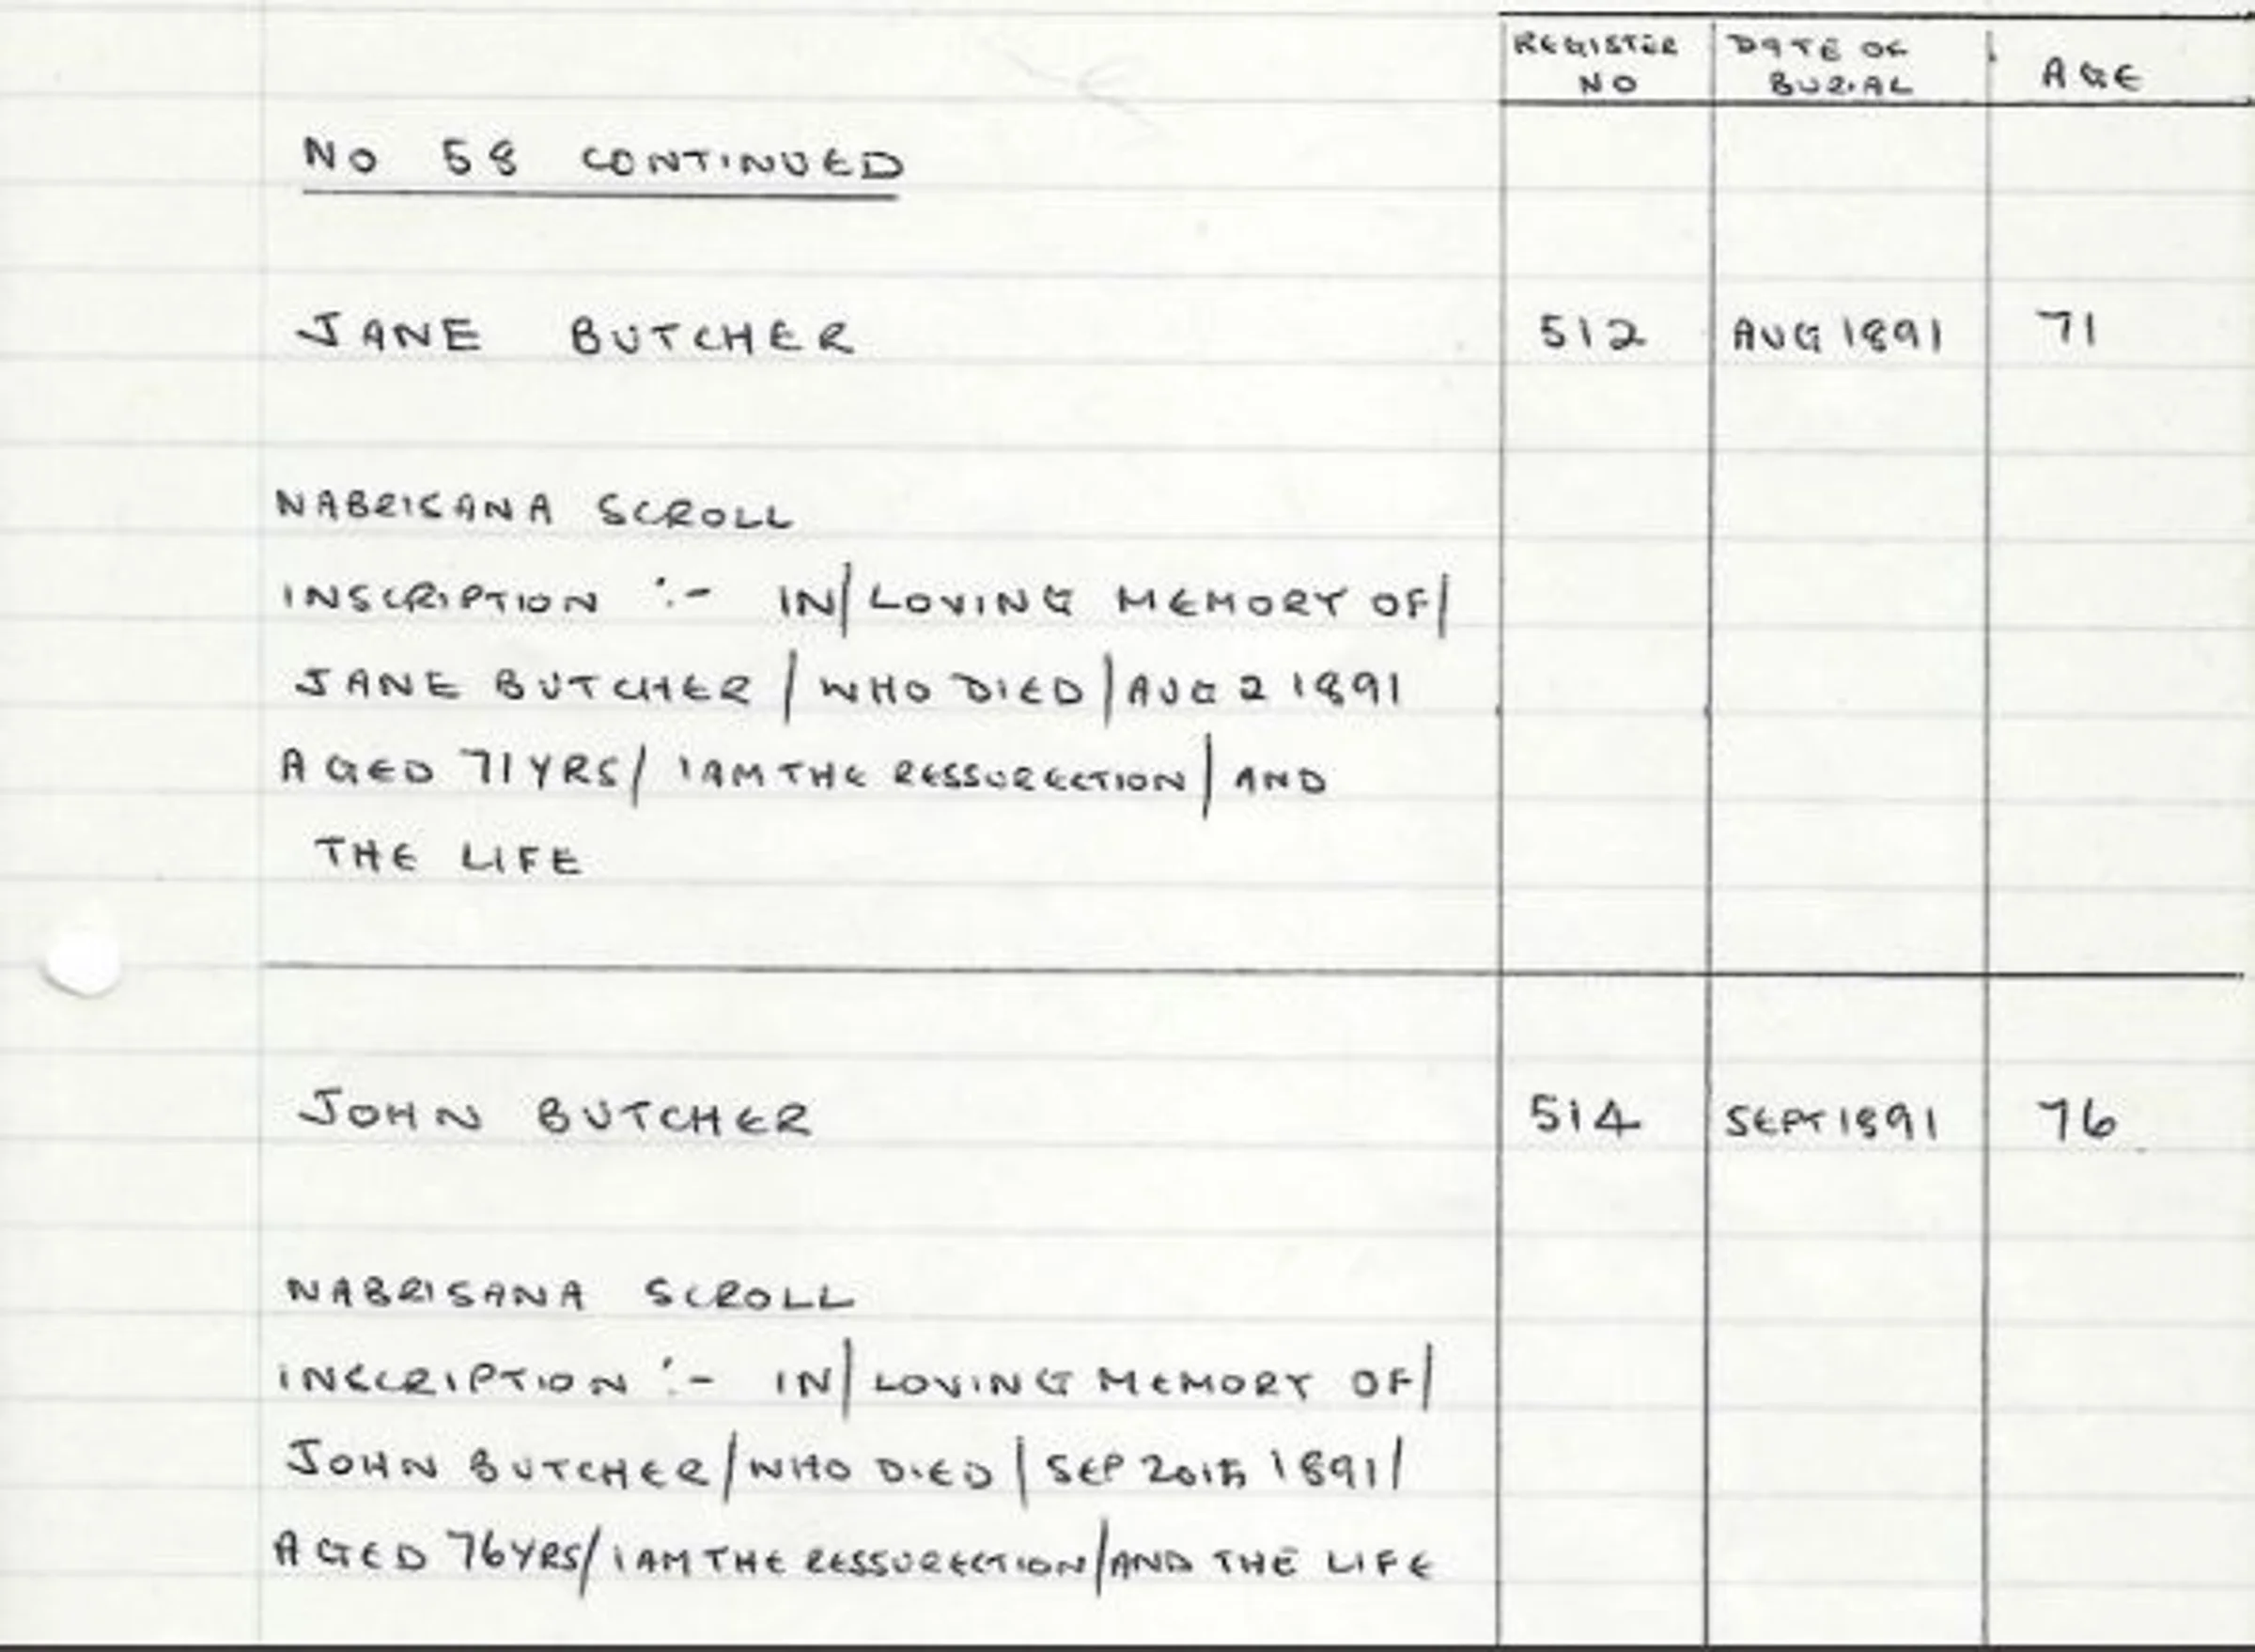 REGISTER NO DATE OF BURIAL AGE
No 58 CONTINUED
JANE BUTCHER 512 AUG 1891 71
NABRISANA SCROLL
INSCRIPTION :- IN/ LOVING MEMORY OF/
JANE BUTCHER / WHO DIED / AUG 2 1891
AGED 71YRS/ I AM THE RESSURECTION / AND
THE LIFE
JOHN BUTCHER 514 SEPT 1891 76
NABRISANA SCROLL
INSCRIPTION :- IN/ LOVING MEMORY OF/
JOHN BUTCHER / WHO DIED / SEP 20th 1891/
AGED 76YRS/ I AM THE RESSURECTION/AND THE LIFE